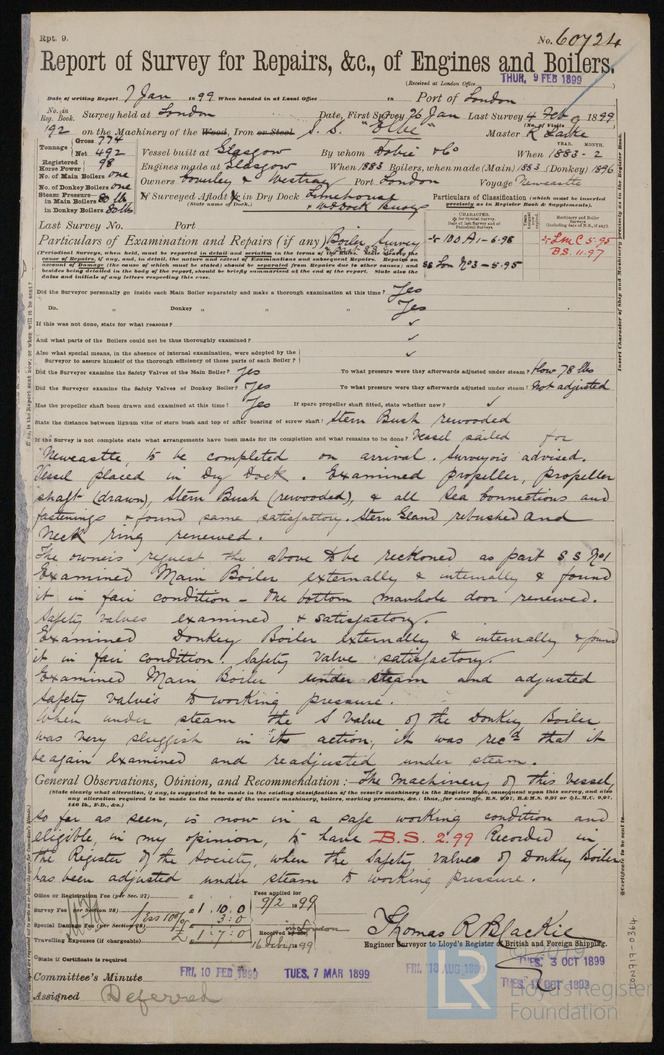 Rpt. 9.
No. 60724
Report of Survey for Repairs, &c., of Engines and Boilers.
(Received at London Office
THUR. 9 FEB 1899
Date of writing Report 7 Jan 1899 When handed in at Local Office in Port of London
No. in Reg. Book. Survey held at London Date, First Survey 26 Jan Last Survey 4 Feb 1899
(No. of Visits
192 on the Machinery of the Wood, Iron or Steel S. S. "Elbe" Master R
Tonnage Gross 774
Net 492
YEAR. MONTH.
Vessel built at Glasgow By whom Dobie & Co When 1883-2
Registered Horse Power 98
Engines made at Glasgow When 1883 Boilers, when made (Main) 1883 (Donkey) 1896
No. of Main Boilers one
No. of Donkey Boilers one
Owners Townley & Westray Port London Voyage Newcastle
Steam Pressure in Main Boilers 80 lb
in Donkey Boilers 80 lb
If Surveyed Afloat or in Dry Dock Limehouse
(State name of Dock.) & W I Dock Buoys
Particulars of Classification (which must be inserted precisely as in Register Book & Supplements).
Last Survey No. Port
Particulars of Examination and Repairs (if any) Boiler Survey
+ 100 A1-6.98
SS Lon No 3-5.95
+ LMC 5.95
B.S. 11.97
Did the Surveyor personally go inside each Main Boiler separately and make a thorough examination at this time? Yes
Do. " Donkey " " " " Yes
If this was not done, state for what reasons? ✓
And what parts of the Boilers could not be thus thoroughly examined? ✓
Also what special means, in the absence of internal examination, were adopted by the
Surveyor to assure himself of the thorough efficiency of those parts of each Boiler? ✓
Did the Surveyor examine the Safety Valves of the Main Boiler? Yes To what pressure were they afterwards adjusted under steam? Now 78 lbs
Did the Surveyor examine the Safety Valves of Donkey Boiler? Yes To what pressure were they afterwards adjusted under steam? Not adjusted
Has the propeller shaft been drawn and examined at this time? Yes If spare propeller shaft fitted, state whether new? ✓
State the distance between lignum vitæ of stern bush and top of after bearing of screw shaft? Stern Bush rewooded
If the Survey is not complete state what arrangements have been made for its completion and what remains to be done? Vessel sailed for
Newcastle, to be completed on arrival. Surveyors advised.
Vessel placed in Dry Dock. Examined propeller, propeller
shaft (drawn), Stern Bush (rewooded), & all Sea Connections and
fastenings & found same satisfactory. Stern Gland rebushed and
Neck ring renewed.
The owners request the above to be reckoned as part S S No 1
Examined Main Boiler externally & internally & found
it in fair condition - One bottom manhole door renewed.
Safety valves examined & satisfactory.
Examined Donkey Boiler externally & internally & found
it in fair condition. Safety Valve satisfactory.
Examined Main Boiler under steam and adjusted
safety valves to working pressure.
When under steam the S Valve of the Donkey Boiler
was very sluggish in its action, it was recd that it
be again examined and readjusted under steam.
General Observations, Opinion, and Recommendation:- The machinery of this Vessel,
(State clearly what alteration, if any, is suggested to be made in the existing classification of the vessel's machinery in the Register Book, consequent upon this survey, and also
any alteration required to be made in the records of the vessel's machinery, boilers, working pressures, &c.: thus, for example, B.S. 9,97, B.&M.S. 9,97 or +L.M.C. 9,97,
140 lb., F.D., &c.)
so far as seen, is now in a safe working condition and
eligible, in my opinion, to have B.S. 2.99 Recorded in
the Register of the Society, when the Safety Valves of Donkey Boiler
has been adjusted under steam to working pressure.
Office or Registration Fee (per Sec. 27) £
Survey Fee (per Section 28) £ 1.10.0
Less 10% 3:0
Special Damage Fee (per Section 28)
£ 1.7.0
Travelling Expenses (if chargeable)
Fees applied for
9/2 1899
Received by me,
16 1899
Thomas R Blackie
Engineer Surveyor to Lloyd's Register of British and Foreign Shipping.
State if Certificate is required
Committee's Minute
FRI. 10 FEB 1899
TUES. 7 MAR 1899
FRI. 18 AUG 1899
TUES. 3 OCT 1899
TUES. 17 OCT 1899
Assigned Deferred
LON717-0364
© 2019
LR
Lloyd's Register
Foundation